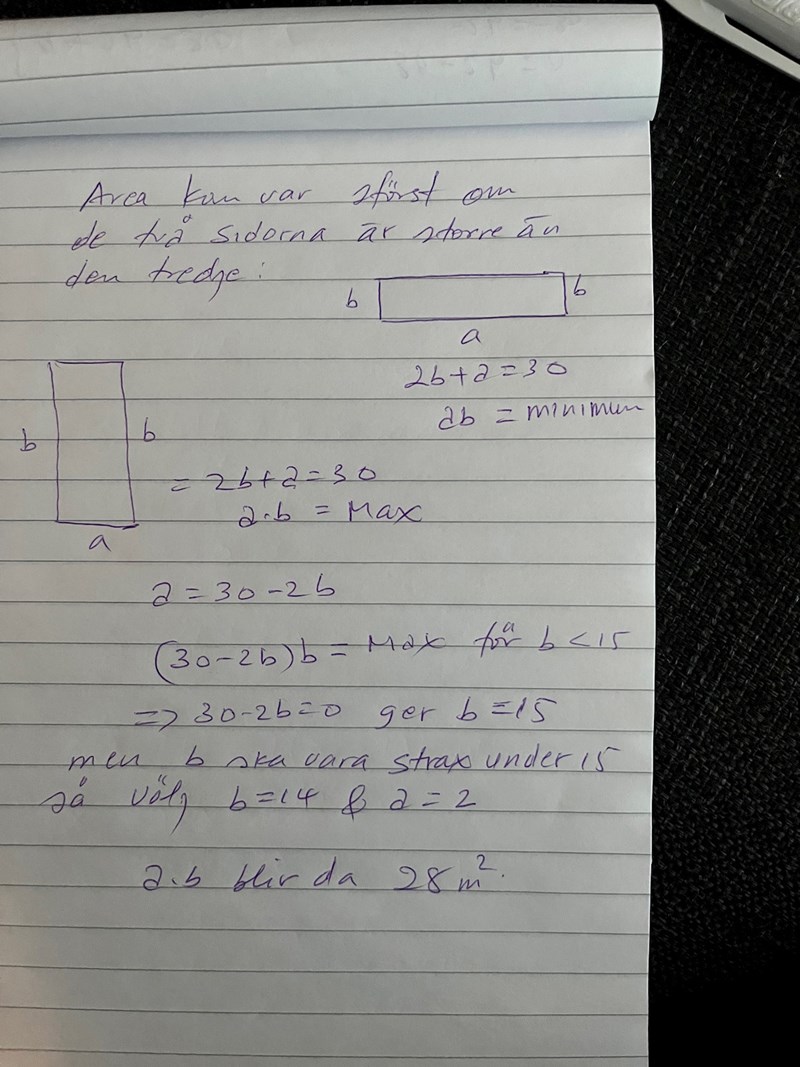 Area kan var störst om
de två sidorna är större än
den tredje:
b
b
a
2b+a=30
ab = minimum
b
b
a
= 2b+a=30
a·b = Max
a=30-2b
(30-2b)b = Max för b<15
=> 30-2b=0 ger b=15
men b ska vara strax under 15
så välj b=14 & a=2
a·b blir da 28 m².